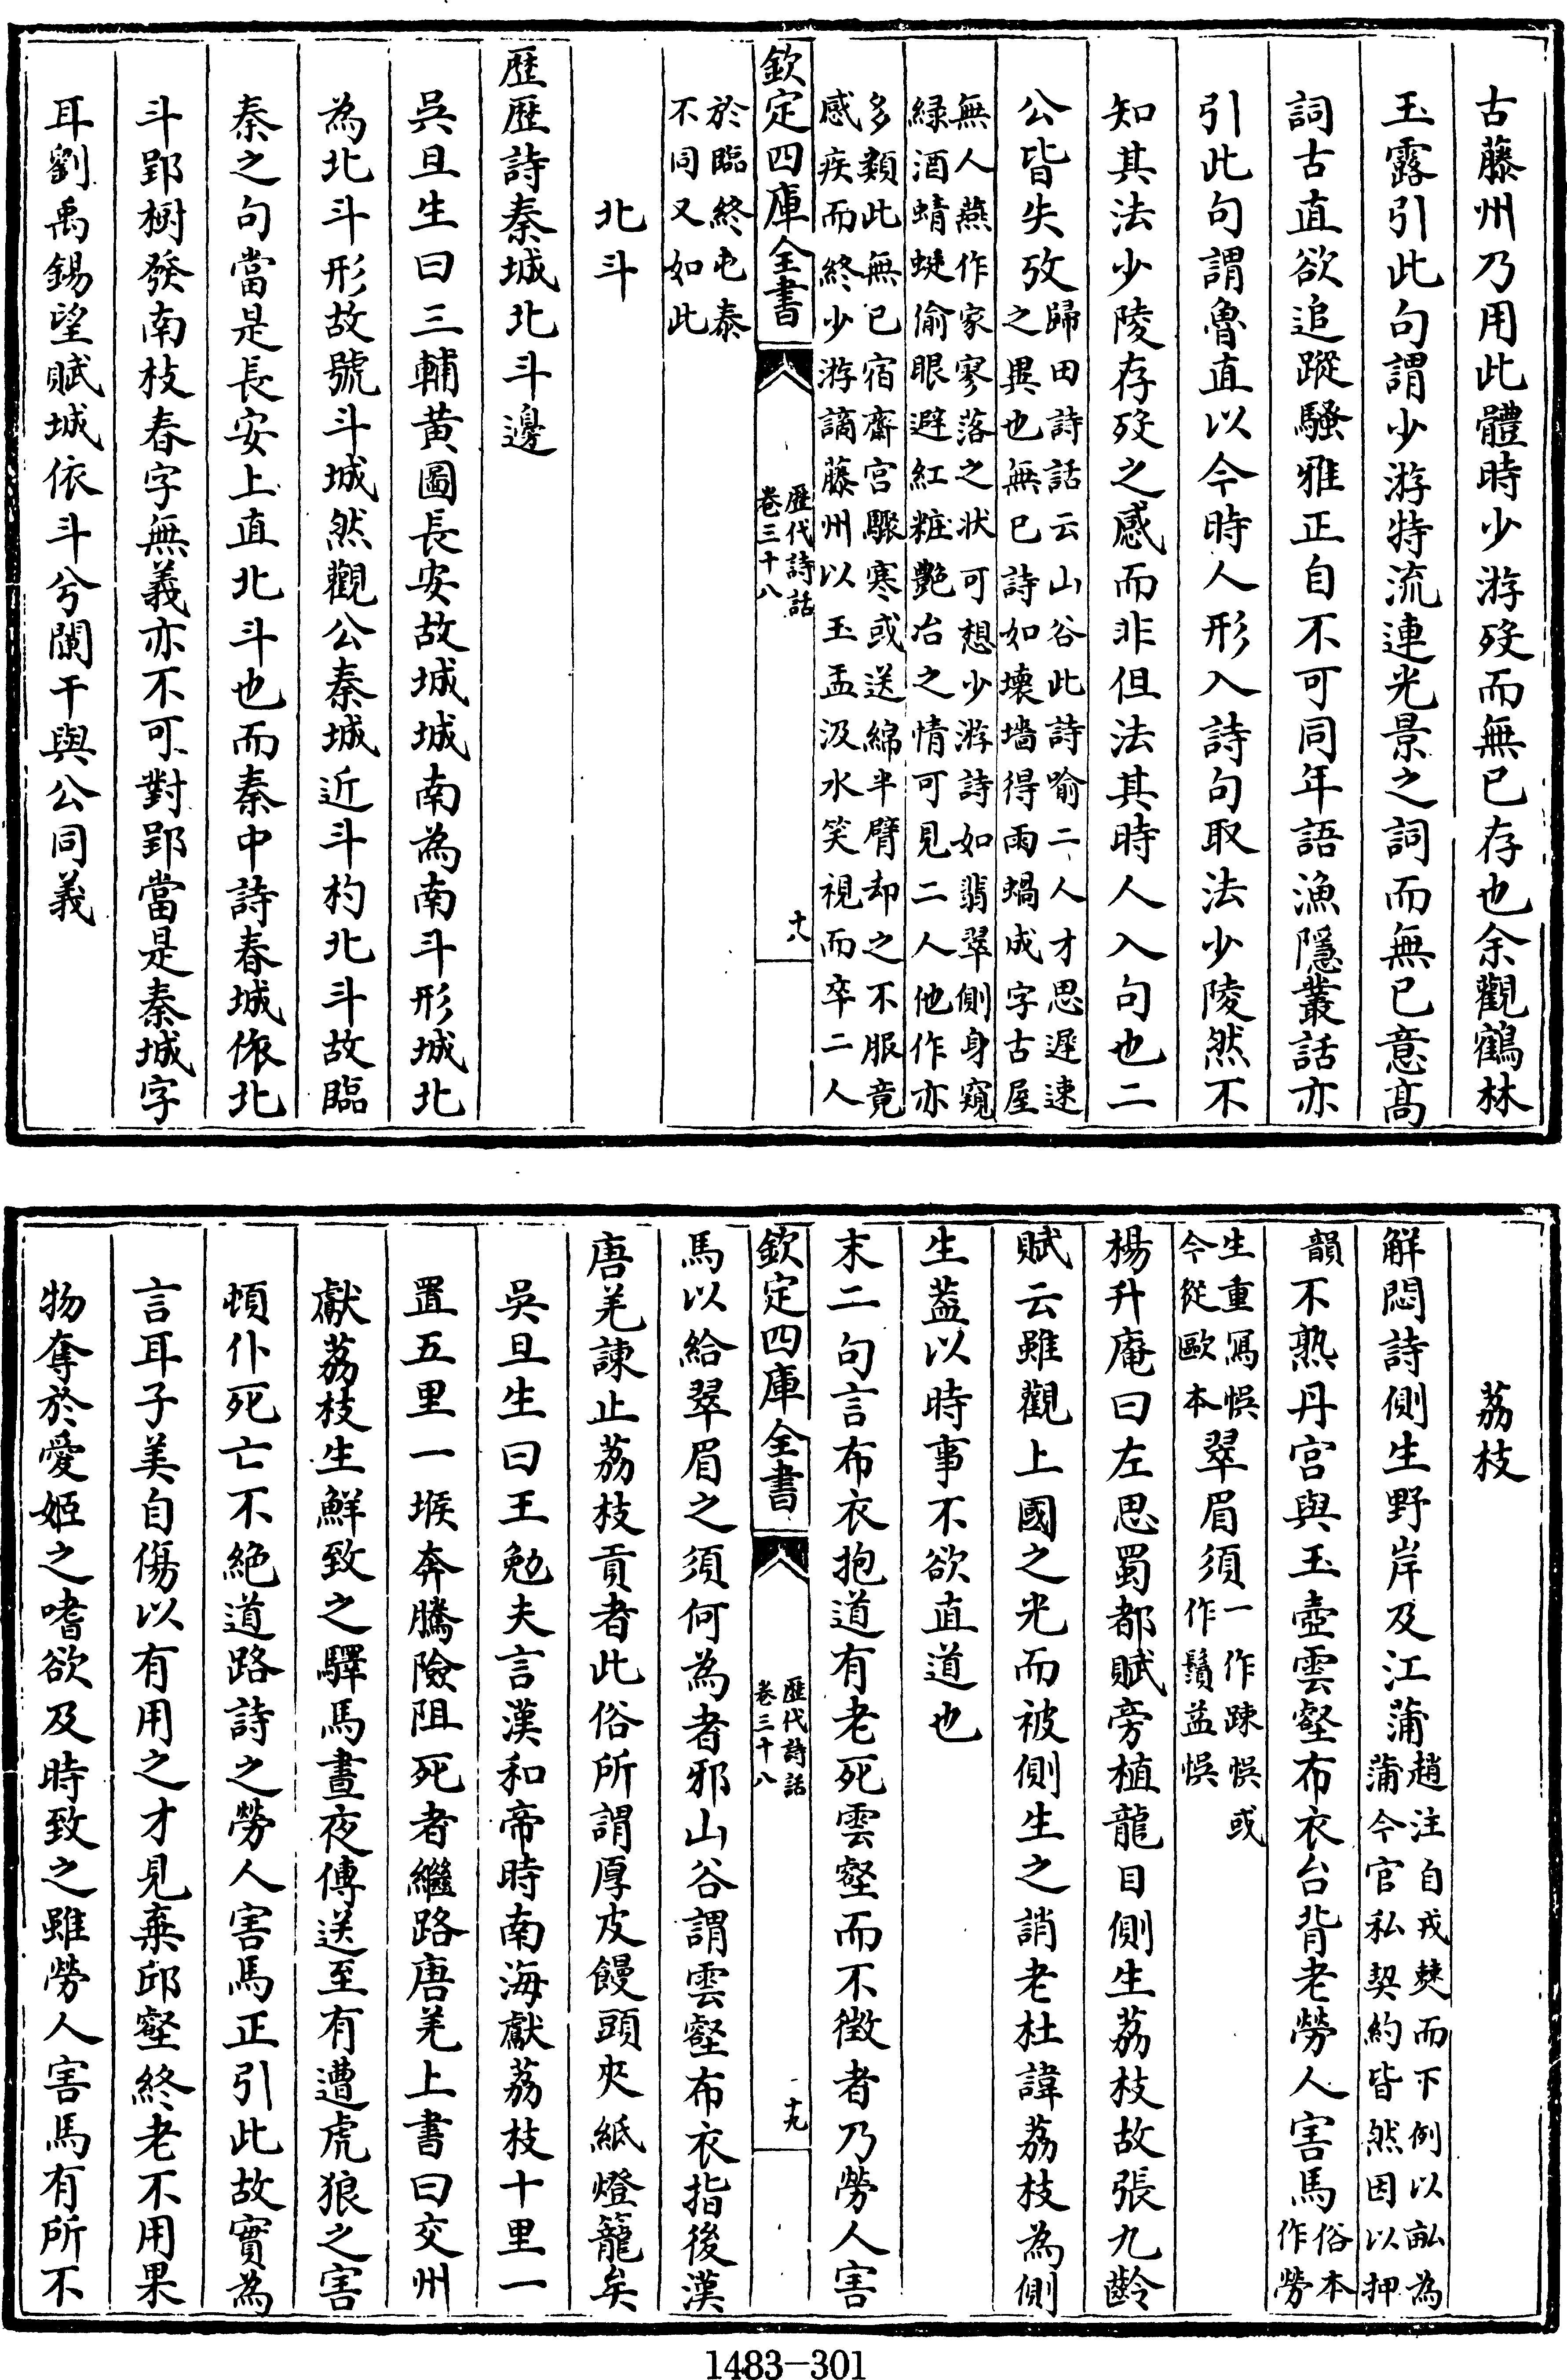 古藤州乃用此體時少游歿而無已存也余觀鶴林
玉露引此句謂少游特流連光景之詞而無已意高
詞古直欲追蹤騷雅正自不可同年語漁隱叢話亦
引此句謂魯直以今時人形入詩句取法少陵然不
知其法少陵存歿之感而非但法其時人入句也二
公皆失攷歸田詩話云山谷此詩喻二人才思遲速
之異也無已詩如壊墻得雨蝸成字古屋
無人燕作家寥落之状可想少游詩如翡翠側身窺
緑酒蜻蜓偷眼避紅粧艷冶之情可見二人他作亦
多類此無已宿齋宮驟寒或送綿半臂却之不服竟
感疾而終少游謫藤州以玉盂汲水笑視而卒二人
欽定四庫全書
歴代詩話
卷三十八
十八
於臨終屯泰
不同又如此
北斗
歴歴詩秦城北斗邊
吳旦生曰三輔黃圖長安故城城南為南斗形城北
為北斗形故號斗城然觀公秦城近斗杓北斗故臨
秦之句當是長安上直北斗也而秦中詩春城依北
斗郢樹發南枝春字無義亦不可對郢當是秦城字
耳劉禹錫望賦城依斗兮闌干與公同義
荔枝
解悶詩側生野岸及江蒲趙注自戎僰而下例以畆為
蒲今官私契約皆然因以押
韻不熟丹宫與玉壺雲壑布衣台背老勞人害馬俗本
作勞
生重冩悮
今從歐本翠眉須一作疎悮或
作鬚益悮
楊升庵曰左思蜀都賦旁植龍目側生荔枝故張九齡
賦云雖觀上國之光而被側生之誚老杜諱荔枝為側
生葢以時事不欲直道也
末二句言布衣抱道有老死雲壑而不徴者乃勞人害
欽定四庫全書
歴代詩話
卷三十八
十九
馬以給翠眉之須何為者邪山谷謂雲壑布衣指後漢
唐羌諫止荔枝貢者此俗所謂厚皮饅頭夾紙燈籠矣
吳旦生曰王勉夫言漢和帝時南海獻荔枝十里一
置五里一堠奔騰險阻死者繼路唐羌上書曰交州
獻荔枝生鮮致之驛馬晝夜傳送至有遭虎狼之害
頓仆死亡不絶道路詩之勞人害馬正引此故實為
言耳子美自傷以有用之才見棄邱壑終老不用果
物奪於愛姬之嗜欲及時致之雖勞人害馬有所不
1483-301